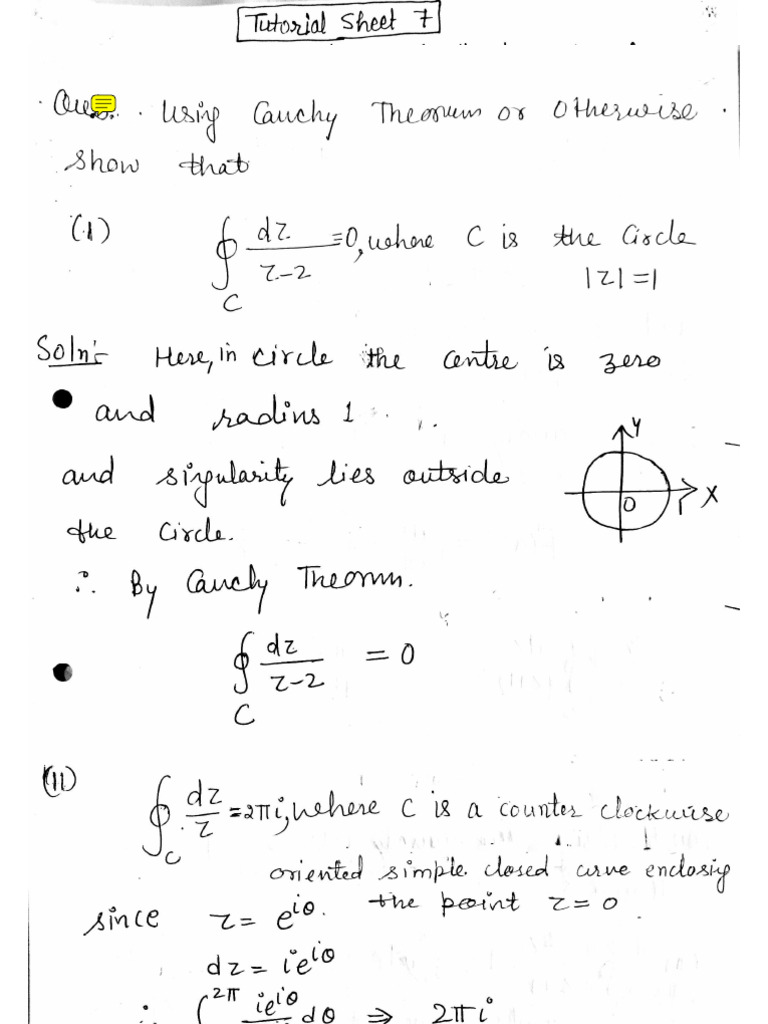 Tutorial Sheet 7
Using Cauchy Theorem or Otherwise.
Show that
(1) ∮_C dz/(z-2) = 0, where C is the Circle
|z| = 1
Soln:- Here, in circle the centre is zero
and radius 1
and singularity lies outside
the circle.
Y
O
X
∴ By Cauchy Theorm.
∮_C dz/(z-2) = 0
(11) ∮_C dz/z = 2πi, where C is a counter clockwise
oriented simple closed curve enclosig
the point z = 0
since z = e^{iθ}.
dz = ie^{iθ}
2π ie^{iθ} dθ ⇒ 2πi